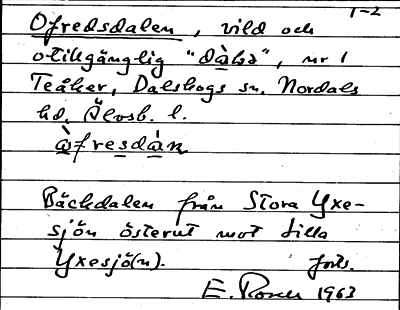 1-2
Ofredsdalen, vild och
otillgänglig "dàla", nr 1
Teåker, Dalskogs sn, Nordals
hd, Älvsb. l.
àfresdàn
Bäckdalen från Stora Yxe-
sjön österut mot Lilla
Yxesjö(n).
forts.
E. Rosell 1963